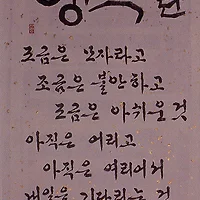 조금은 모자라고
조금은 불안하고
조금은 아쉬운 것
아직은 어리고
아직은 여리어서
내일을 기다리는 것